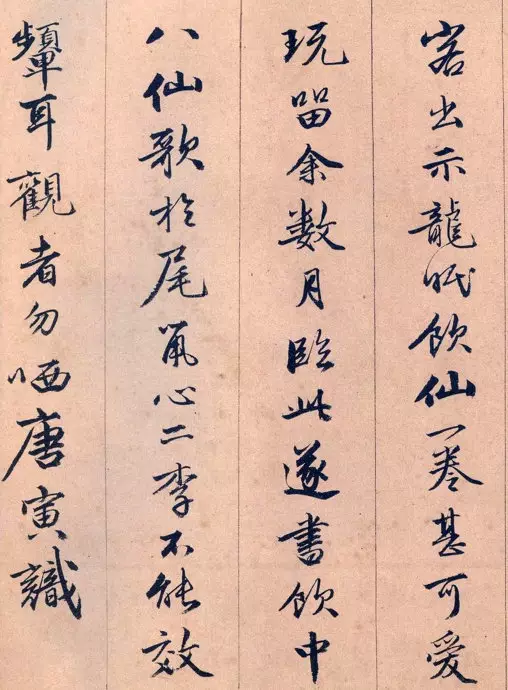 出示龍眠飲仙一卷甚可愛
玩留余數月臨此遂書飲中
八仙歌於尾心二李不能效
顰耳觀者勿哂唐寅識